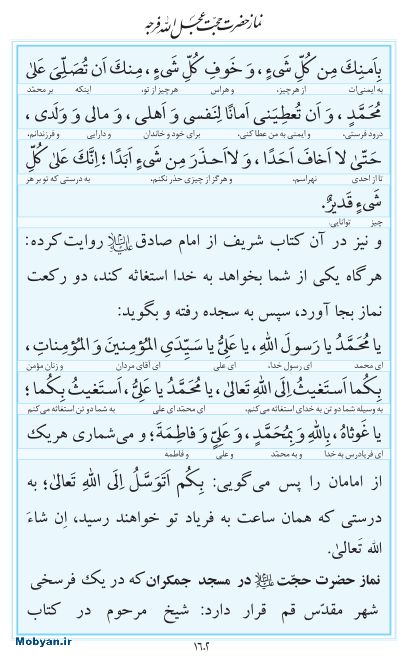 نماز حضرت حجت عجل الله فرجه
بِاَمنِكَ مِن كُلِّ شَیءٍ، وَ خَوفِ كُلِّ شَیءٍ، مِنكَ اَن تُصَلِّیَ عَلیٰ
به ایمنی‌ات از هر چیز، و هراس هر چیز از تو، اینکه بر محمّد
مُحَمَّدٍ، وَ اَن تُعطِیَنی اَمانًا لِنَفسی وَ اَهلی، وَ مالی وَ وَلَدی،
درود فرستی، و ایمنی به من عطا کنی، برای خود و خاندان و دارایی و فرزندانم،
حَتّیٰ لا اَخافَ اَحَدًا، وَ لا اَحذَرَ مِن شَیءٍ اَبَدًا؛ اِنَّكَ عَلیٰ كُلِّ
تا از احدی نهراسم، و هرگز از چیزی حذر نکنم، به درستی که تو بر هر
شَیءٍ قَدیرٌ.
چیز توانایی.
و نیز در آن کتاب شریف از امام صادق علیه‌السلام روایت کرده:
هرگاه یکی از شما بخواهد به خدا استغاثه کند، دو رکعت
نماز بجا آورد، سپس به سجده رفته و بگوید:
یا مُحَمَّدُ یا رَسولَ اللهِ، یا عَلِیُّ یا سَیِّدِی المُؤمِنینَ وَ المُؤمِناتِ،
ای محمد ای رسول خدا، ای علی ای آقای مردان و زنان مؤمن
بِكُما اَستَغیثُ اِلَی اللهِ تَعالیٰ، یا مُحَمَّدُ یا عَلِیُّ، اَستَغیثُ بِكُما؛
به وسیله شما دو تن به خدای استغاثه می‌کنم، ای محمّد ای علی به شما دو تن استغاثه می‌کنم
یا غَوثاهُ، بِاللهِ وَ بِمُحَمَّدٍ، وَ عَلِیٍّ وَ فاطِمَةَ؛ و می‌شماری هر یک
ای فریادرس به خدا و به محمّد و علی و فاطمه
از امامان را پس می‌گویی: بِكُم اَتَوَسَّلُ اِلَی اللهِ تَعالیٰ؛ به
درستی که همان ساعت به فریاد تو خواهند رسید، اِن شاءَ
الله تَعالیٰ.
نماز حضرت حجّت علیه‌السلام در مسجد جمکران که در یک فرسخی
شهر مقدّس قم قرار دارد: شیخ مرحوم در کتاب
۱۶۰۲
Mobyan.ir